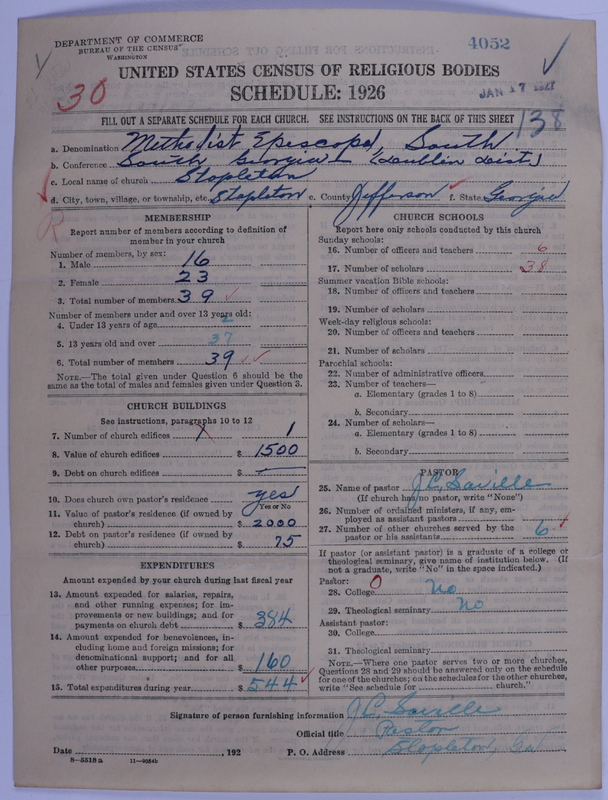 DEPARTMENT OF COMMERCE
BUREAU OF THE CENSUS
WASHINGTON
4052
UNITED STATES CENSUS OF RELIGIOUS BODIES
SCHEDULE: 1926
30
JAN 17
FILL OUT A SEPARATE SCHEDULE FOR EACH CHURCH. SEE INSTRUCTIONS ON THE BACK OF THIS SHEET
138
a. Denomination Methodist Episcopal, South
b. Conference South Georgia (Dublin Dist.)
c. Local name of church Stapleton
d. City, town, village, or township, etc. Stapleton e. County Jefferson f. State Georgia
MEMBERSHIP
Report number of members according to definition of
member in your church
Number of members, by sex:
1. Male 16
2. Female 23
3. Total number of members 39
Number of members under and over 13 years old:
4. Under 13 years of age 2
5. 13 years old and over 37
6. Total number of members 39
NOTE.—The total given under Question 6 should be the
same as the total of males and females given under Question 3.
CHURCH BUILDINGS
See instructions, paragraphs 10 to 12
7. Number of church edifices 1
8. Value of church edifices $ 1500
9. Debt on church edifices $ —
10. Does church own pastor's residence yes
Yes or No
11. Value of pastor's residence (if owned by
church) $ 2000
12. Debt on pastor's residence (if owned by
church) $ 75
EXPENDITURES
Amount expended by your church during last fiscal year
13. Amount expended for salaries, repairs,
and other running expenses; for im-
provements or new buildings; and for
payments on church debt $ 384
14. Amount expended for benevolences, in-
cluding home and foreign missions; for
denominational support; and for all
other purposes $ 160
15. Total expenditures during year $ 544
CHURCH SCHOOLS
Report here only schools conducted by this church
Sunday schools:
16. Number of officers and teachers 6
17. Number of scholars 38
Summer vacation Bible schools:
18. Number of officers and teachers
19. Number of scholars
Week-day religious schools:
20. Number of officers and teachers
21. Number of scholars
Parochial schools:
22. Number of administrative officers
23. Number of teachers—
a. Elementary (grades 1 to 8)
b. Secondary
24. Number of scholars—
a. Elementary (grades 1 to 8)
b. Secondary
PASTOR
25. Name of pastor J.C. Saville
(If church has no pastor, write "None")
26. Number of ordained ministers, if any, em-
ployed as assistant pastors
27. Number of other churches served by the
pastor or his assistants 6
If pastor (or assistant pastor) is a graduate of a college or
theological seminary, give name of institution below. (If
not a graduate, write "No" in the space indicated.)
Pastor: 0
28. College No
29. Theological seminary No
Assistant pastor:
30. College
31. Theological seminary
NOTE.—Where one pastor serves two or more churches,
Questions 28 and 29 should be answered only on the schedule
for one of the churches; on the schedules for the other churches,
write "See schedule for church."
Signature of person furnishing information J.C. Saville
Official title Pastor
Date , 192 P. O. Address Stapleton, Ga
8—5518 a 11—9084b